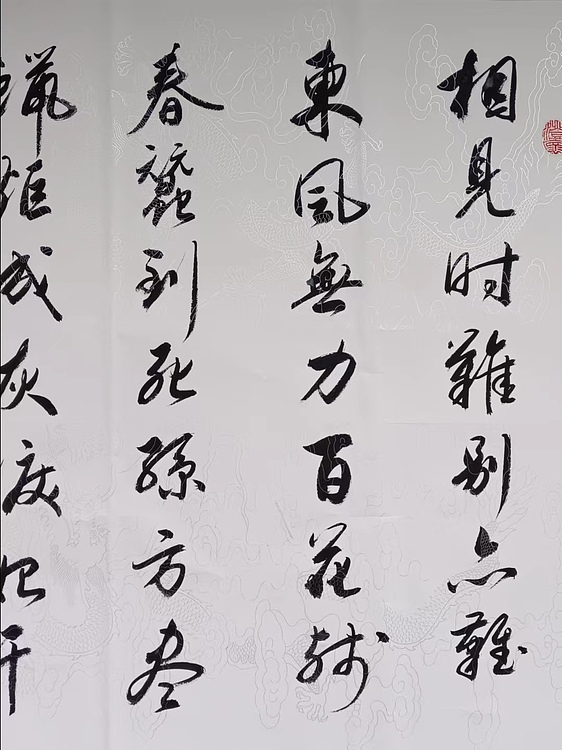 相見时難别亦難
東風無力百花残
春蠶到死絲方尽
蠟炬成灰淚始干